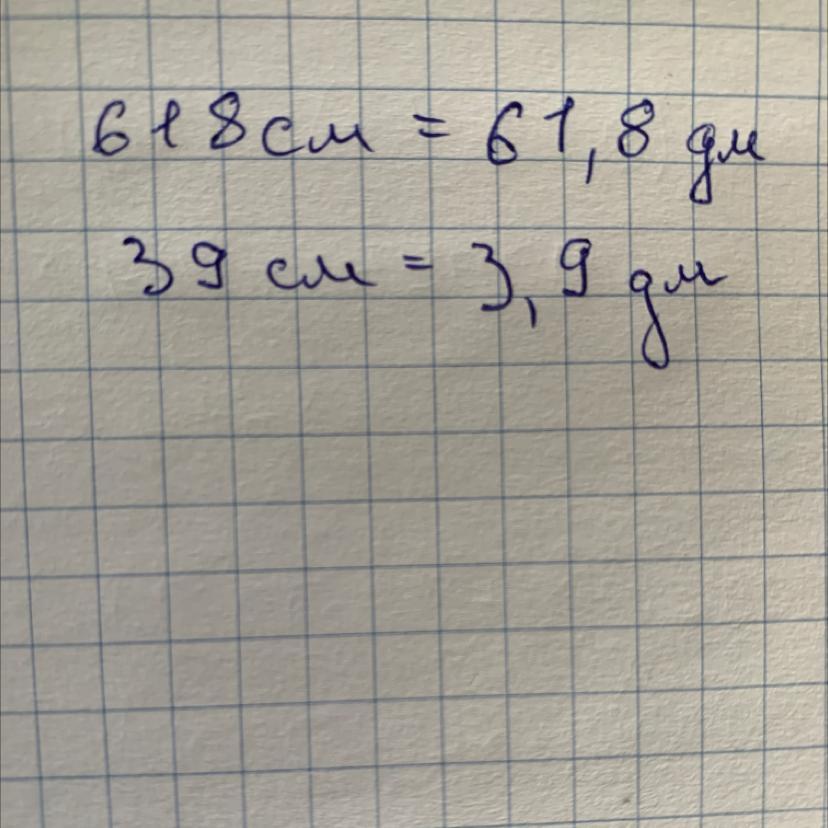 618 см = 61,8 дм
39 см = 3,9 дм